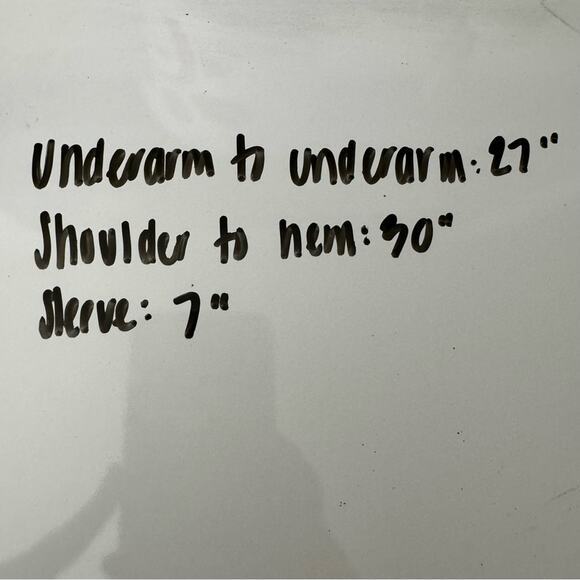 Underarm to underarm: 27"
Shoulder to hem: 30"
Sleeve: 7"